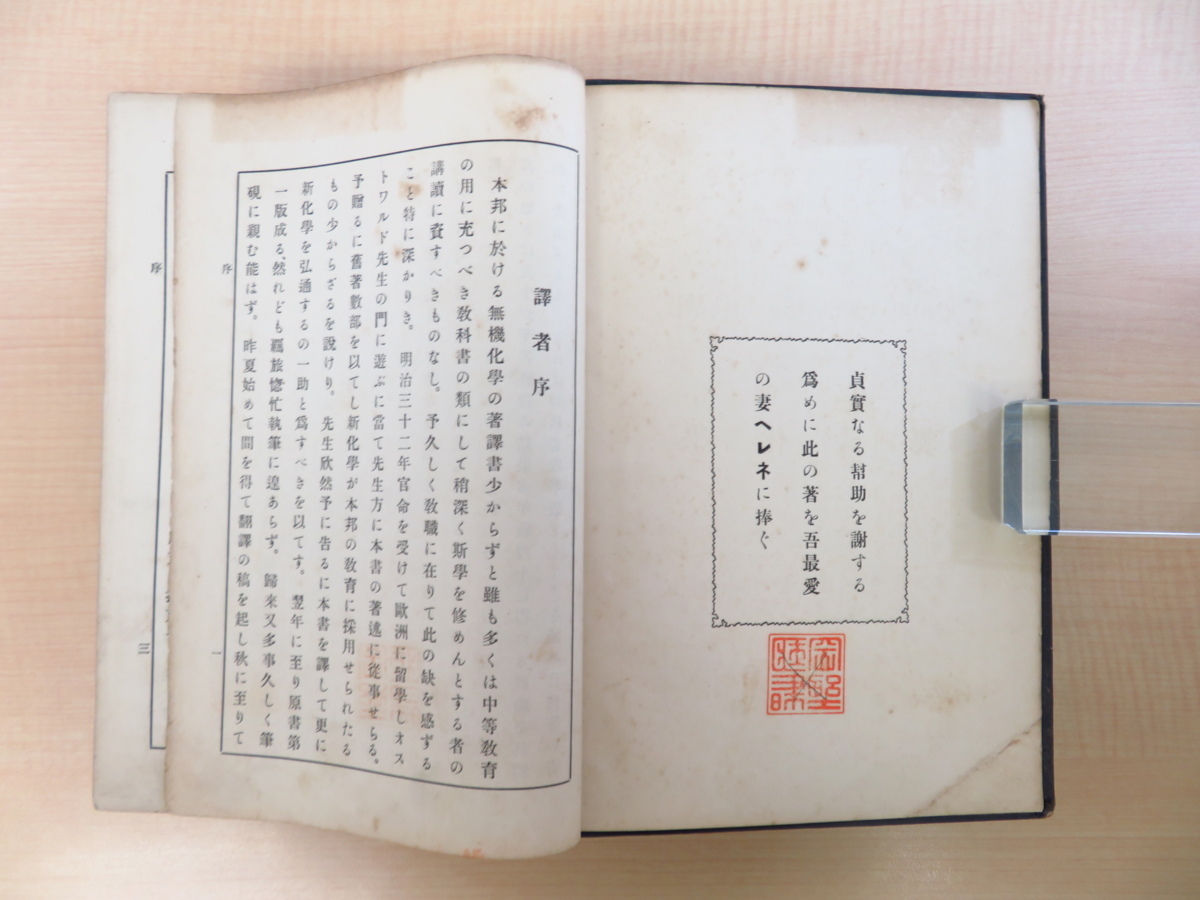 貞實なる幇助を謝する
爲めに此の著を吾最愛
の妻ヘレネに捧ぐ
譯者序
本邦に於ける無機化學の著譯書少からずと雖も多くは中等敎育
の用に充つべき敎科書の類にして稍深く斯學を修めんとする者の
講讀に資すべきものなし。予久しく敎職に在りて此の缺を感ずる
こと特に深かりき。明治三十二年官命を受けて歐洲に留學しオス
トワルド先生の門に遊ぶに當て先生方に本書の著述に從事せらる。
予贈るに舊著數部を以てし新化學が本邦の敎育に採用せられたる
もの少からざるを說けり。先生欣然予に告るに本書を譯して更に
新化學を弘通するの一助と爲すべきを以てす。翌年に至り原書第
一版成る、然れども羈旅惚忙執筆に遑あらず。歸來又多事久しく筆
硯に親む能はず。昨夏始めて間を得て翻譯の稿を起し秋に至りて
序
一
序
三